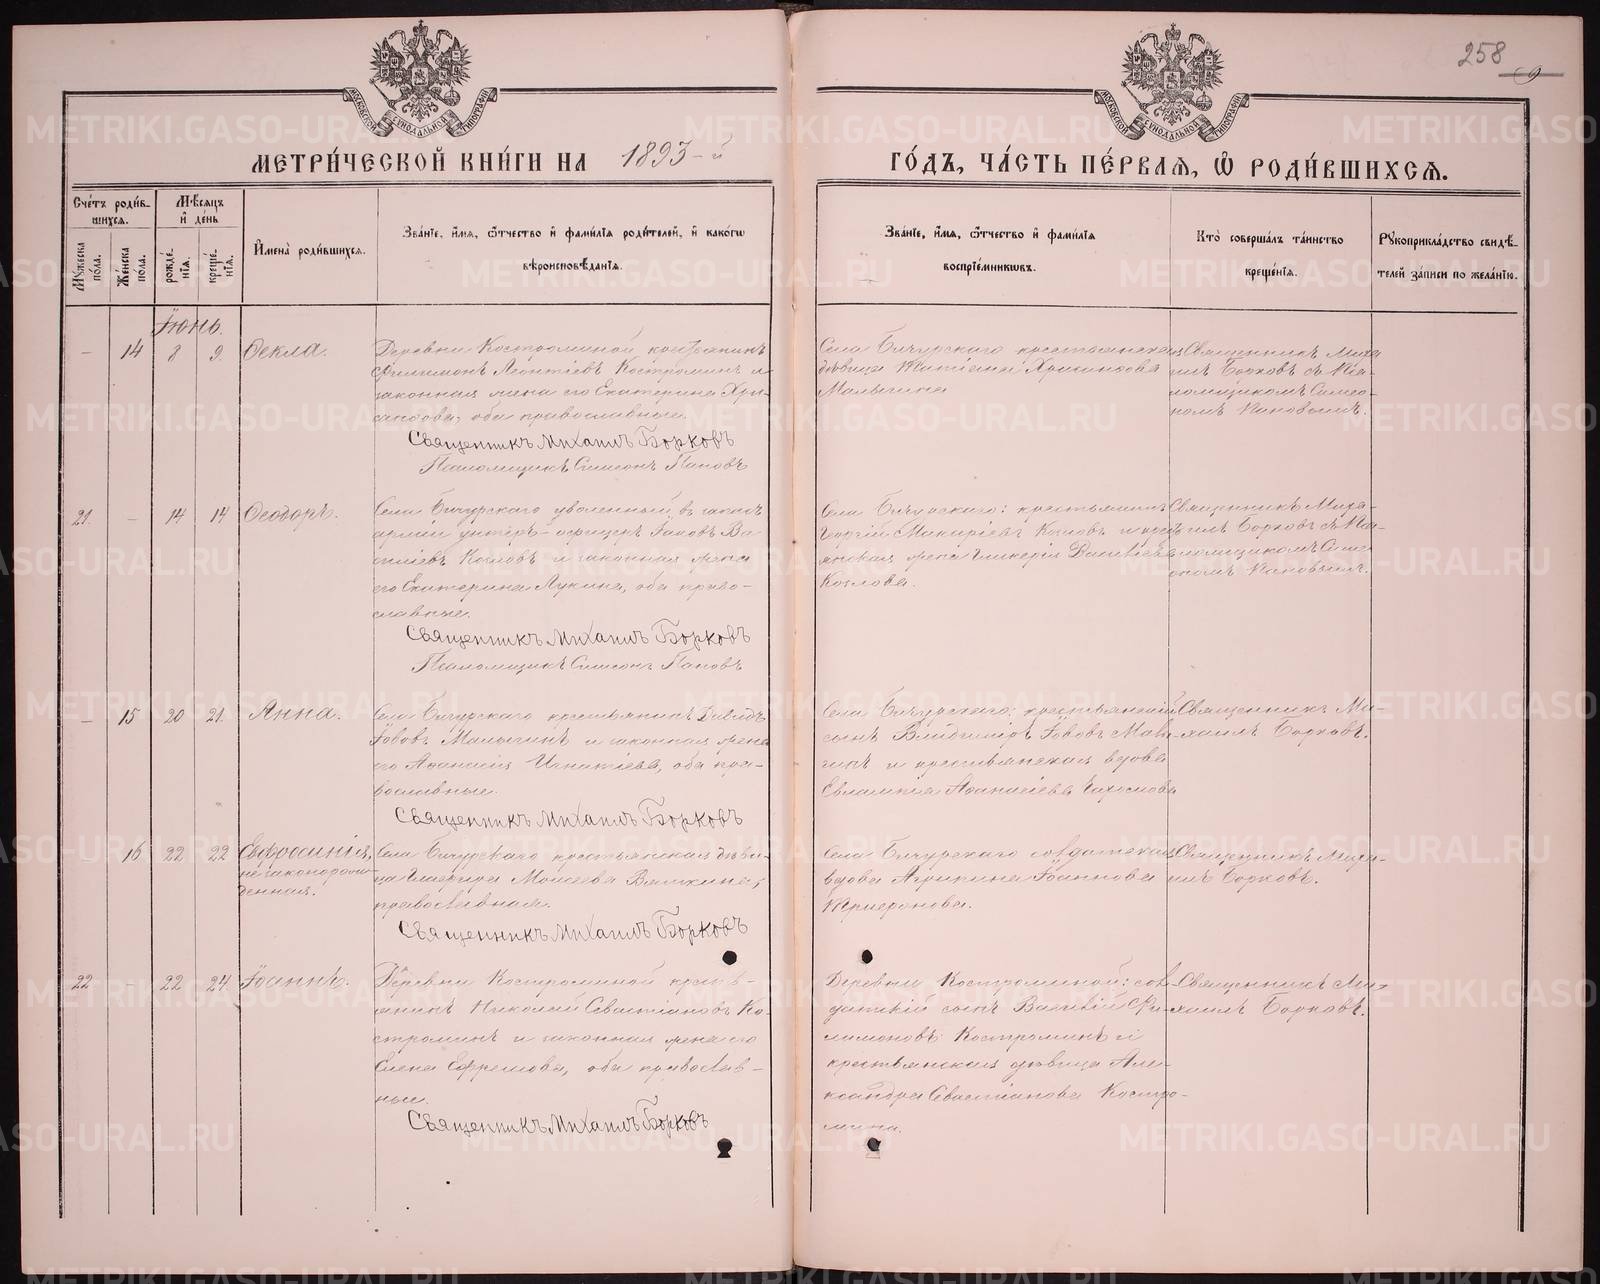 258
МОСКОВСКОЙ СѴНОДАЛЬНОЙ ТИПОГРАФІИ
МОСКОВСКОЙ СѴНОДАЛЬНОЙ ТИПОГРАФІИ
МЕТРИ́ЧЕСКОЙ КНИ́ГИ НА 1893-й
ГО́ДЪ, ЧА́СТЬ ПЕ́РВАЯ, Ѡ РОДИ́ВШИХСЯ.
Сче́тъ роди́в-
шихся.
Мꙋжеска по́ла.
Же́нска по́ла.
Мѣ́сяцъ
и҆ де́нь
рожде́-
нїя.
креще́-
нїя.
И҆мена̀ роди́вшихся.
Зва́нїе, и҆́мя, ѻ҆́тчество и҆ фами́лїя роди́телей, и҆ како́гѡ
вѣроисповѣ́данїя.
Зва́нїе, и҆́мя, ѻ҆́тчество и҆ фами́лїя
воспрїе́мникѡвъ.
Кто̀ соверша́лъ та́инство
креще́нїя.
Рꙋкоприкла́дство свидѣ́-
телей за́писи по жела́нїю.
Іюнь.
- 14 8 9 Ѳекла.
Деревни Костроминой крестьянинъ
Филимонъ Леонтіевъ Костроминъ и
законная жена его Екатерина Хри-
санѳова, оба православные.
Священникъ Михаилъ Борковъ
Псаломщикъ Симеонъ Пановъ
Села Бичурскаго крестьянская
дѣвица Татіана Хрисанѳова
Малыгина
Священникъ Миха
илъ Борковъ съ Пса-
ломщикомъ Симео-
номъ Пановымъ.
21. - 14 14 Ѳеодоръ.
Села Бичурскаго уволенный въ запасъ
арміи унтеръ-офицеръ Іаковъ Ва
силіевъ Козловъ и законная жена
его Екатерина Лукина, оба право-
славные.
Священникъ Михаилъ Борковъ
Псаломщикъ Симеонъ Пановъ
Села Бичурскаго: крестьянинъ
Георгій Козловъ и крест
янская жена Гликерія
Козлова.
Священникъ Миха-
илъ Борковъ съ Пса-
ломщикомъ Симе
ономъ Пановымъ.
- 15 20 21. Анна.
Села Бичурскаго крестьянинъ Давидъ
Іововъ Малыгинъ и законная жена
его Аѳанасія Игнатіева, оба пра-
вославные.
Священникъ Михаилъ Борковъ
Села Бичурскаго: крестьянскій
сынъ Владиміръ Іововъ Малы-
гинъ и крестьянская вдова
Евлампія Аѳанасіева
Священникъ Ми-
хаилъ Борковъ.
- 16 22 22 Евфросинія,
незаконорож-
денная.
Села Бичурскаго крестьянская дѣви-
ца Гликерія Моисеева Вяткина,
православная.
Священникъ Михаилъ Борковъ
Села Бичурскаго солдатская
вдова Агрипина Іоаннова
Священникъ Миха-
илъ Борковъ.
22 - 22 24 Іоаннъ.
Деревни Костроминой кресть-
янинъ Николай Севастіановъ Ко-
строминъ и законная жена его
Елена Ефремова, оба православ-
ные.
Священникъ Михаилъ Борковъ
Деревни Костроминой: сол-
датскій сынъ Василій Фи-
лимоновъ Костроминъ и
крестьянская дѣвица Але-
ксандра Севастіанова Костро-
мина.
Священникъ Ми-
хаилъ Борковъ.
METRIKI.GASO-URAL.RU